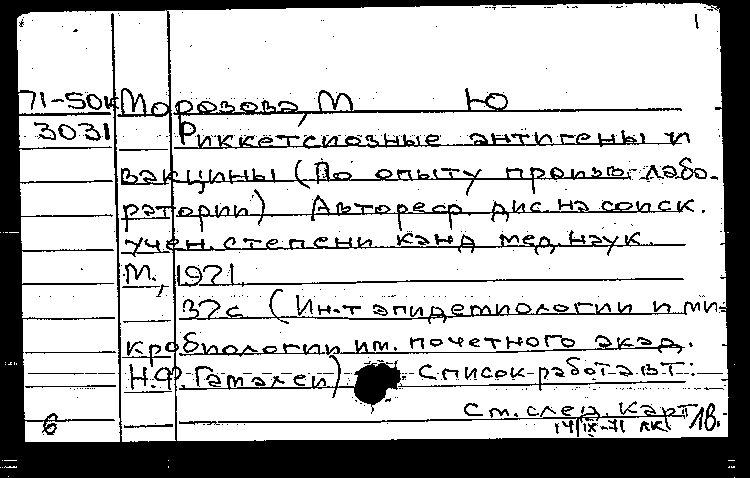 1
71-50к Морозова, М Ю
3031 Риккетсиозные антигены и
вакцины (По опыту произв. лабо-
ратории) Автореф. дис. на соиск.
учен. степени канд мед. наук.
М., 1971.
37с (Ин-т эпидемиологии и ми-
кробиологии им. почетного акад.
Н.Ф. Гамалеи) Список работ авт:
См. след. карт
6 14/IX-71 ЛК 18.